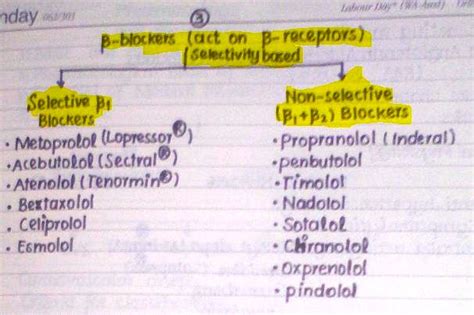 nday 063/303
Labour Day* (WA-Aust)
③
β-blockers (act on β-receptors)
(selectivity based
Selective β₁
Blockers
• Metoprolol (Lopressor®)
• Acebutolol (Sectral®)
• Atenolol (Tenormin®)
• Bextaxolol
• Celiprolol
• Esmolol
Non-selective
(β₁+β₂) Blockers
• Propranolol (Inderal)
• penbutolol
• Timolol
• Nadolol
• Sotalol
• Cliranolol
• Oxprenolol
• pindolol